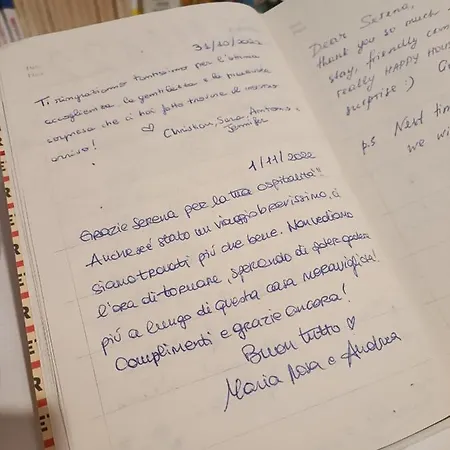 31/10/2022
Ti ringraziamo tantissimo per l'ottima
accoglienza, la gentilezza e la
sorpresa che ci hai fatto trovare al nostro
arrivo!
♡ Christian, Sara, Antonio e
Jennifer
1/11/2022
Grazie Serena per la tua ospitalità!!
Anche se è stato un viaggio brevissimo, ci
siamo trovati più che bene. Non vediamo
l'ora di tornare, sperando di poter godere
più a lungo di questa casa meravigliosa!
Complimenti e grazie ancora!
Buon tutto ♡
Maria Rosa e Andrea
Dear Serena,
thank you so much
stay, friendly
really HAPPY
surprise :)
p.s Next
we